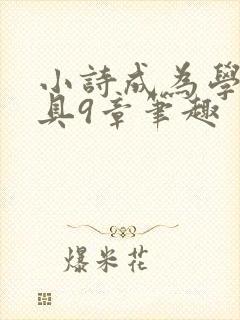 小詩成為學
具9章筆趣
爆米花